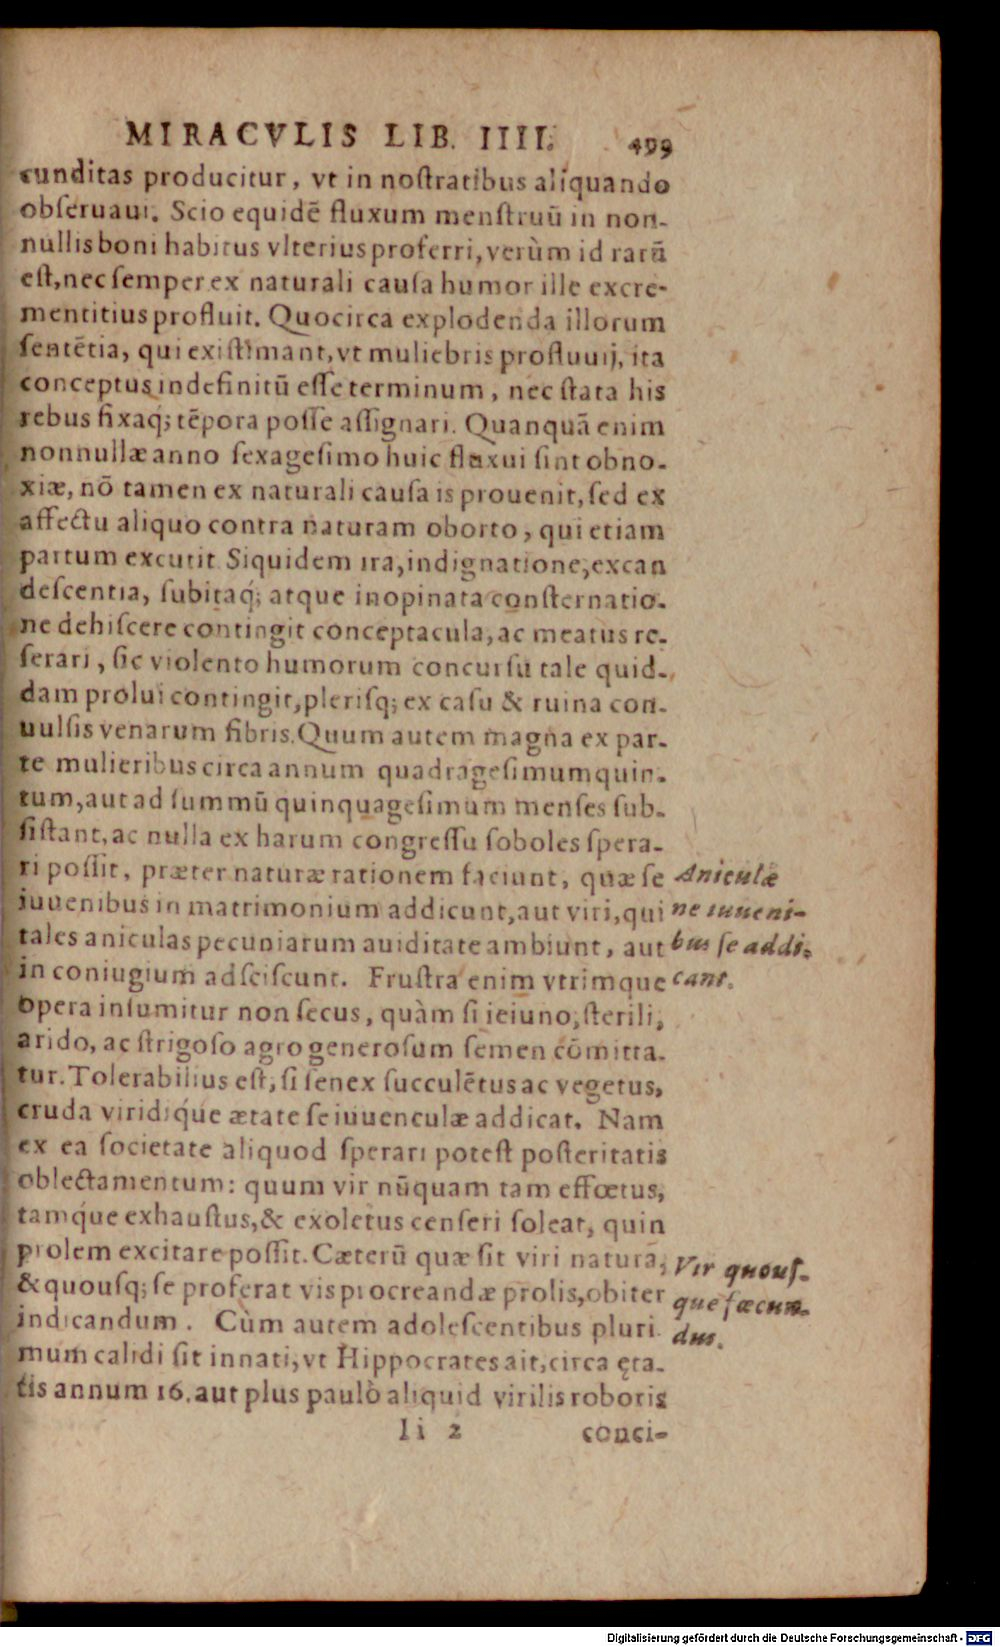 MIRACVLIS LIB. IIII. 499
cunditas producitur, vt in noſtratibus aliquando
obſeruaui. Scio equidē fluxum menſtruū in non-
nullis boni habitus vlterius proferri, verùm id rarū
eſt, nec ſemper ex naturali cauſa humor ille excre-
mentitius profluit. Quocirca explodenda illorum
ſentētia, qui exiſtimant, vt muliebris profluuij, ita
conceptus indefinitū eſſe terminum, nec ſtata his
rebus fixaq́; tēpora poſſe aſſignari. Quanquā enim
nonnullæ anno ſexageſimo huic fluxui ſint obno-
xiæ, nō tamen ex naturali cauſa is prouenit, ſed ex
affectu aliquo contra naturam oborto, qui etiam
partum excutit Siquidem ira, indignatione, excan
deſcentia, ſubitaq́; atque inopinata conſternatio-
ne dehiſcere contingit conceptacula, ac meatus re-
ſerari, ſic violento humorum concurſu tale quid-
dam prolui contingit, pleriſq; ex caſu & ruina con-
uulſis venarum fibris. Quum autem magna ex par-
te mulieribus circa annum quadrageſimumquin-
tum, aut ad ſummū quinquageſimum menſes ſub-
ſiſtant, ac nulla ex harum congreſſu ſoboles ſpera-
ri poſſit, præter naturæ rationem faciunt, quæ ſe
iuuenibus in matrimonium addicunt, aut viri, qui
tales aniculas pecuniarum auiditate ambiunt, aut
in coniugium adſciſcunt. Fruſtra enim vtrimque
opera inſumitur non ſecus, quàm ſi ieiuno, ſterili,
arido, ac ſtrigoſo agro generoſum ſemen cōmitta-
tur. Tolerabilius eſt, ſi ſenex ſucculētus ac vegetus,
cruda viridiq́ue ætate ſe iuuenculæ addicat. Nam
ex ea ſocietate aliquod ſperari poteſt poſteritatis
oblectamentum: quum vir nūquam tam effœtus,
tamq́ue exhauſtus, & exoletus cenſeri ſoleat, quin
prolem excitare poſſit. Cæterū quæ ſit viri natura,
& quouſq; ſe proferat vis procreandæ prolis, obiter
indicandum. Cùm autem adoleſcentibus pluri
mum calidi ſit innati, vt Hippocrates ait, circa ęta-
tis annum 16. aut plus paulò aliquid virilis roboris
Ii 2 conci-
Aniculæ
ne iuueni-
bus ſe addi-
cant.
Vir quouſ-
que fœcun-
dus.
Digitalisierung gefördert durch die Deutsche Forschungsgemeinschaft - DFG